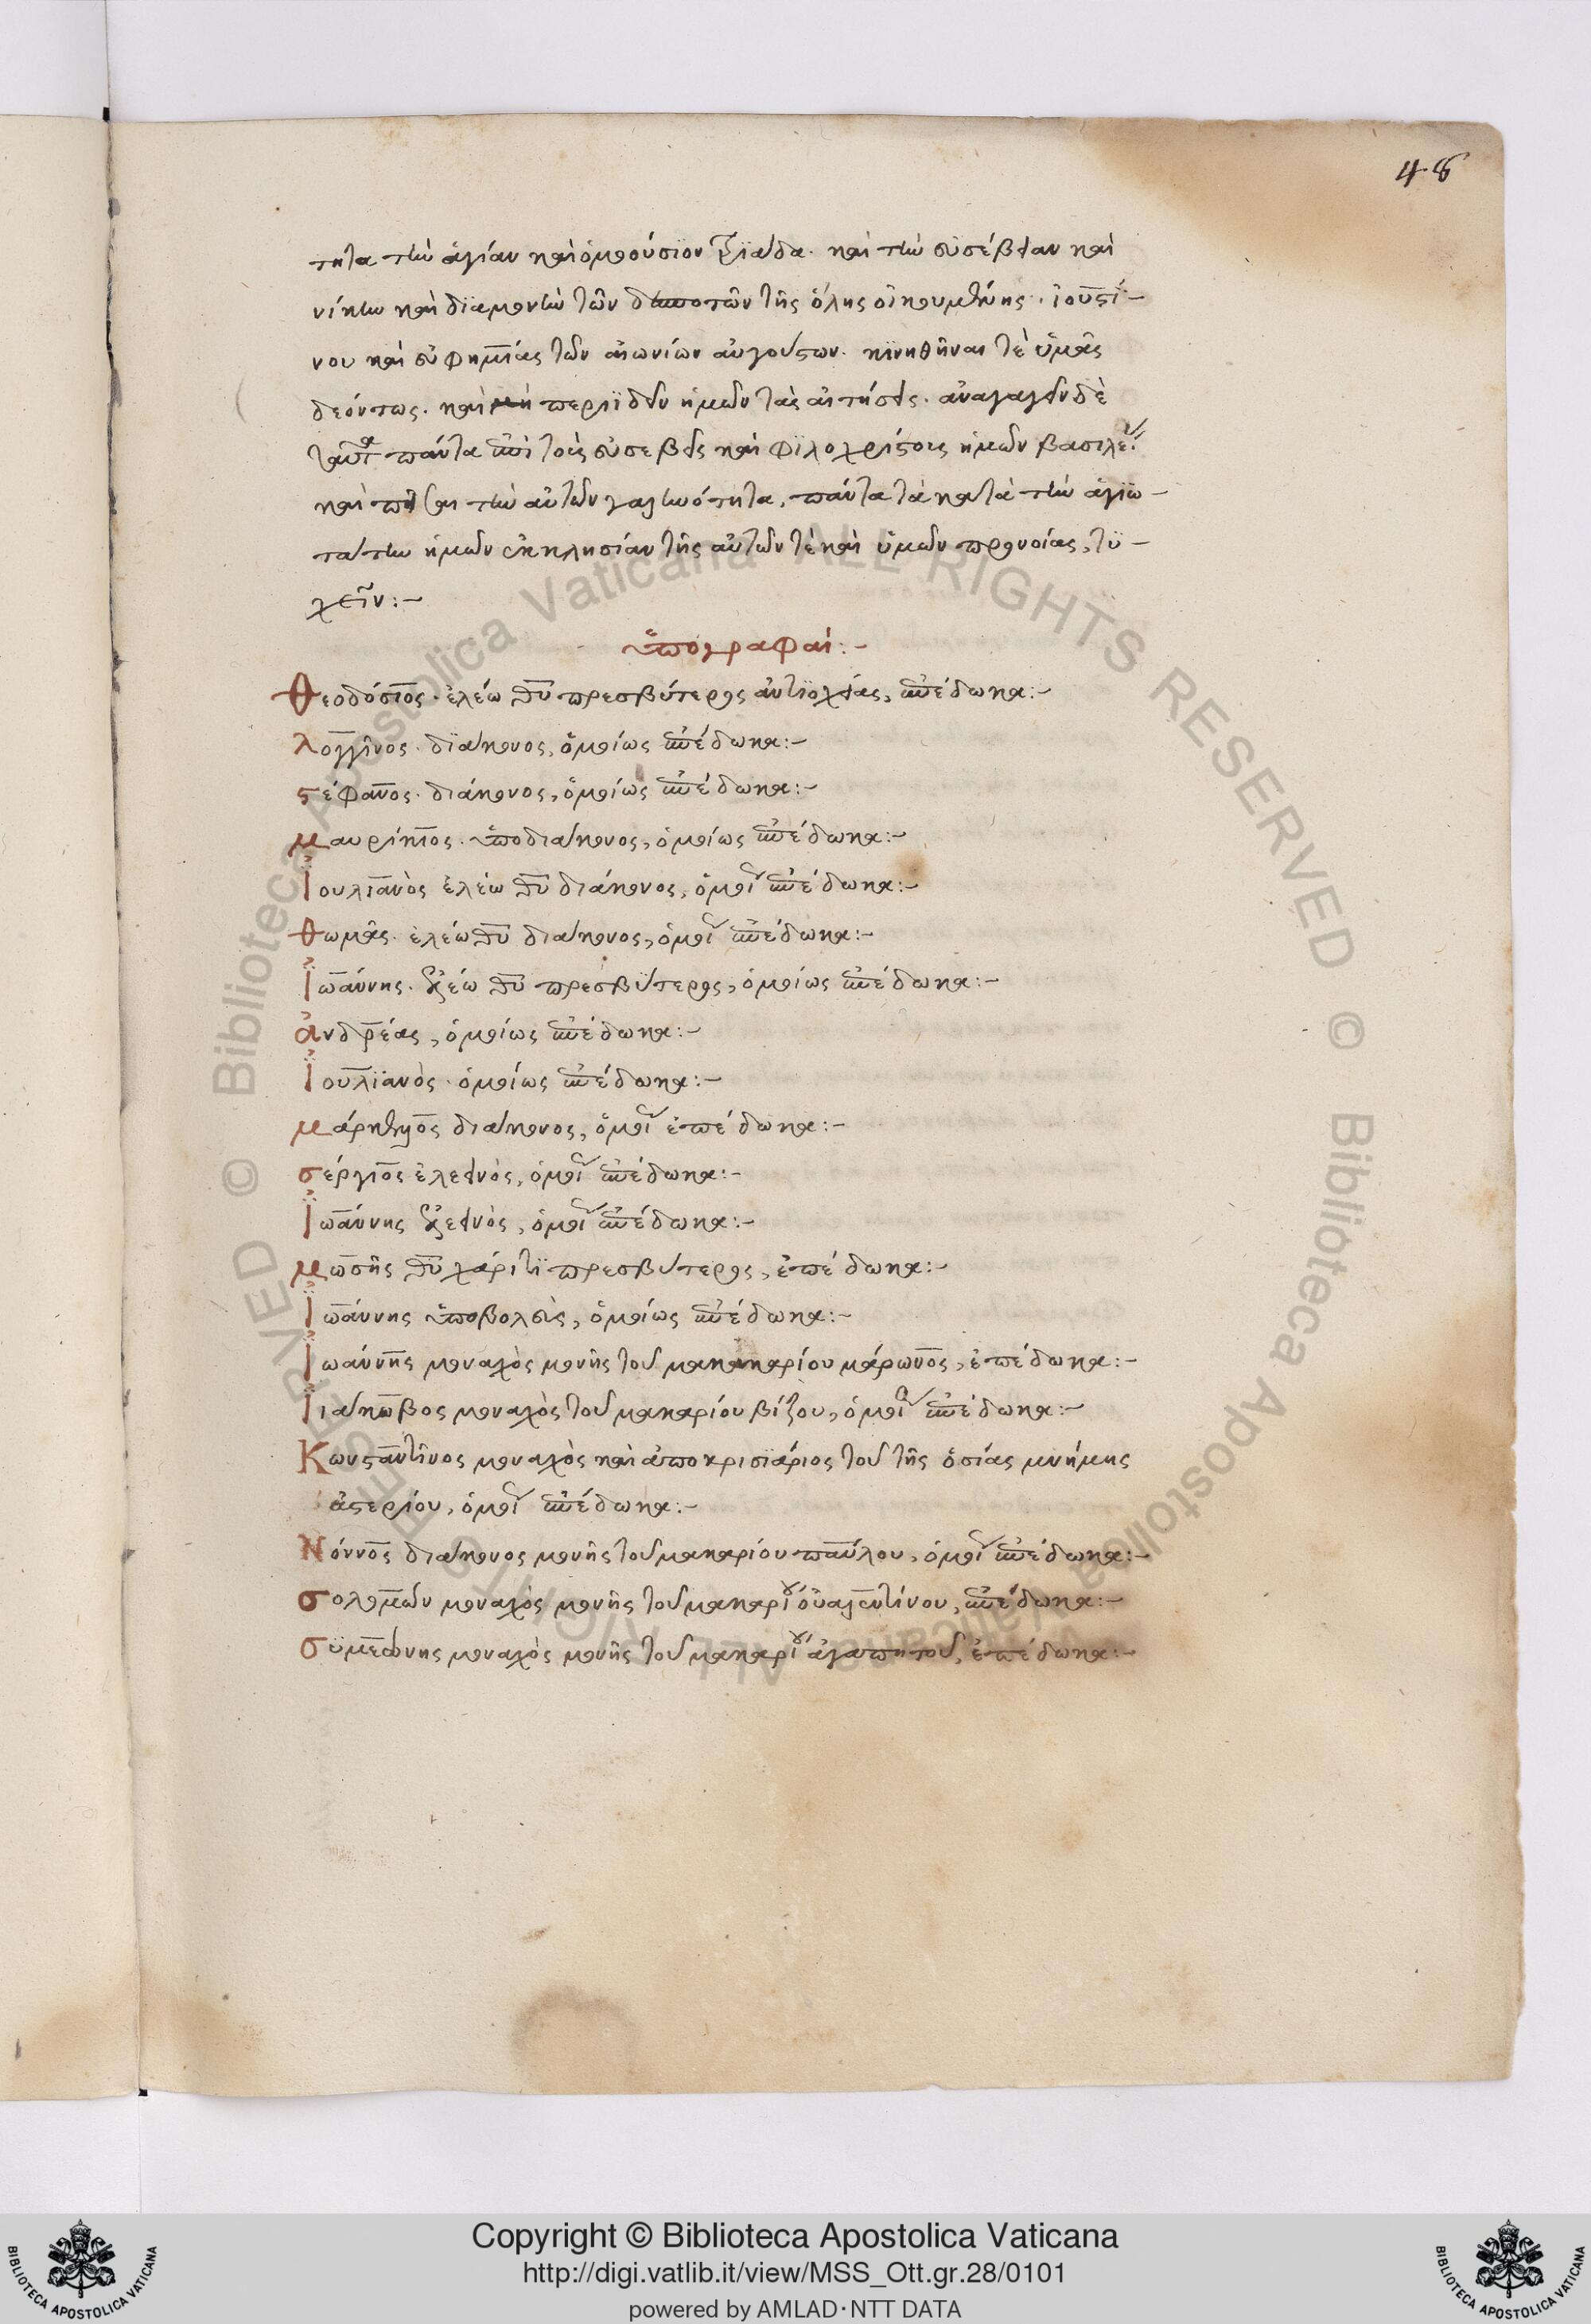 48
τητα τὴν ἁγίαν καὶ ὁμοούσιον Τριάδα. καὶ τὴν εὐσέβειαν καὶ
νίκην καὶ διαμονὴν τῶν δεσποτῶν τῆς ὅλης οἰκουμένης. ἰουστί-
νου καὶ εὐφημίας τῶν αἰωνίων αὐγούστων. κινηθῆναι τὲ ὑμᾶς
δεόντως. καὶ μὴ περιϊδεῖν ἡμῶν τὰς αἰτήσεις. ἀναγαγεῖν δὲ
ταῦτα πάντα ἐπὶ τοῖς εὐσεβεῖς καὶ φιλοχρίστοις ἡμῶν βασιλεῦ
καὶ τὴν αὐτῶν γαληνότητα, πάντα τὰ κατὰ τὴν ἁγιω-
τάτην ἡμῶν ἐκκλησίαν τῆς αὐτῶν τὲ καὶ ὑμῶν προνοίας, τυ-
χεῖν:-
ὑπογραφαί:-
Θεοδόσιος. ἐλέω θῦ πρεσβύτερος ἀντιοχείας, ἐπέδωκα:-
λογγῖνος. διάκονος, ὁμοίως ἐπέδωκα:-
στέφανος. διάκονος, ὁμοίως ἐπέδωκα:-
μαυρίκιος. ὑποδιάκονος, ὁμοίως ἐπέδωκα:-
Ἰουλιανὸς ἐλέω θῦ διάκονος, ὁμοί ἐπέδωκα:-
θωμᾶς. ἐλέω θῦ διάκονος, ὁμοί ἐπέδωκα:-
Ἰωάννης. ἐλέω θῦ πρεσβύτερος, ὁμοίως ἐπέδωκα:-
ἀνδρέας, ὁμοίως ἐπέδωκα:-
Ἰουλϊανὸς. ὁμοίως ἐπέδωκα:-
μάρκελλος διάκονος, ὁμοί ἐπέδωκα:-
σέργιος ἐλεεινὸς, ὁμοί ἐπέδωκα:-
Ἰωάννης ἐλεεινὸς, ὁμοί ἐπέδωκα:-
μωσῆς θῦ χάριτι πρεσβύτερος, ἐπέδωκα:-
Ἰωάννης ὑποβολεὺς, ὁμοίως ἐπέδωκα:-
Ἰωάννης μοναχὸς μονῆς τοῦ μακακαρίου μάρωνος, ἐπέδωκα:-
Ἰάκωβος μοναχὸς τοῦ μακαρίου βίζου, ὁμοί ἐπέδωκα:-
Κωνσταντῖνος μοναχὸς καὶ ἀποκρισϊάριος τοῦ τῆς ὁσίας μνήμης
ἀστερίου, ὁμοί ἐπέδωκα:-
Νόννος διάκονος μονῆς τοῦ μακαρίου παύλου, ὁμοί ἐπέδωκα:-
σολομῶν μοναχὸς μονῆς τοῦ μακαρίου οὐαλεντίνου, ἐπέδωκα:-
σϋμεώνης μοναχὸς μονῆς τοῦ μακαρίου ἀγαπητοῦ, ἐπέδωκα:-
© Biblioteca Apostolica Vaticana ALL RIGHTS RESERVED © Biblioteca Apostolica Vaticana ALL RIGHTS RESERVED
Copyright © Biblioteca Apostolica Vaticana
http://digi.vatlib.it/view/MSS_Ott.gr.28/0101
powered by AMLAD·NTT DATA
BIBLIOTECA APOSTOLICA VATICANA
BIBLIOTECA APOSTOLICA VATICANA